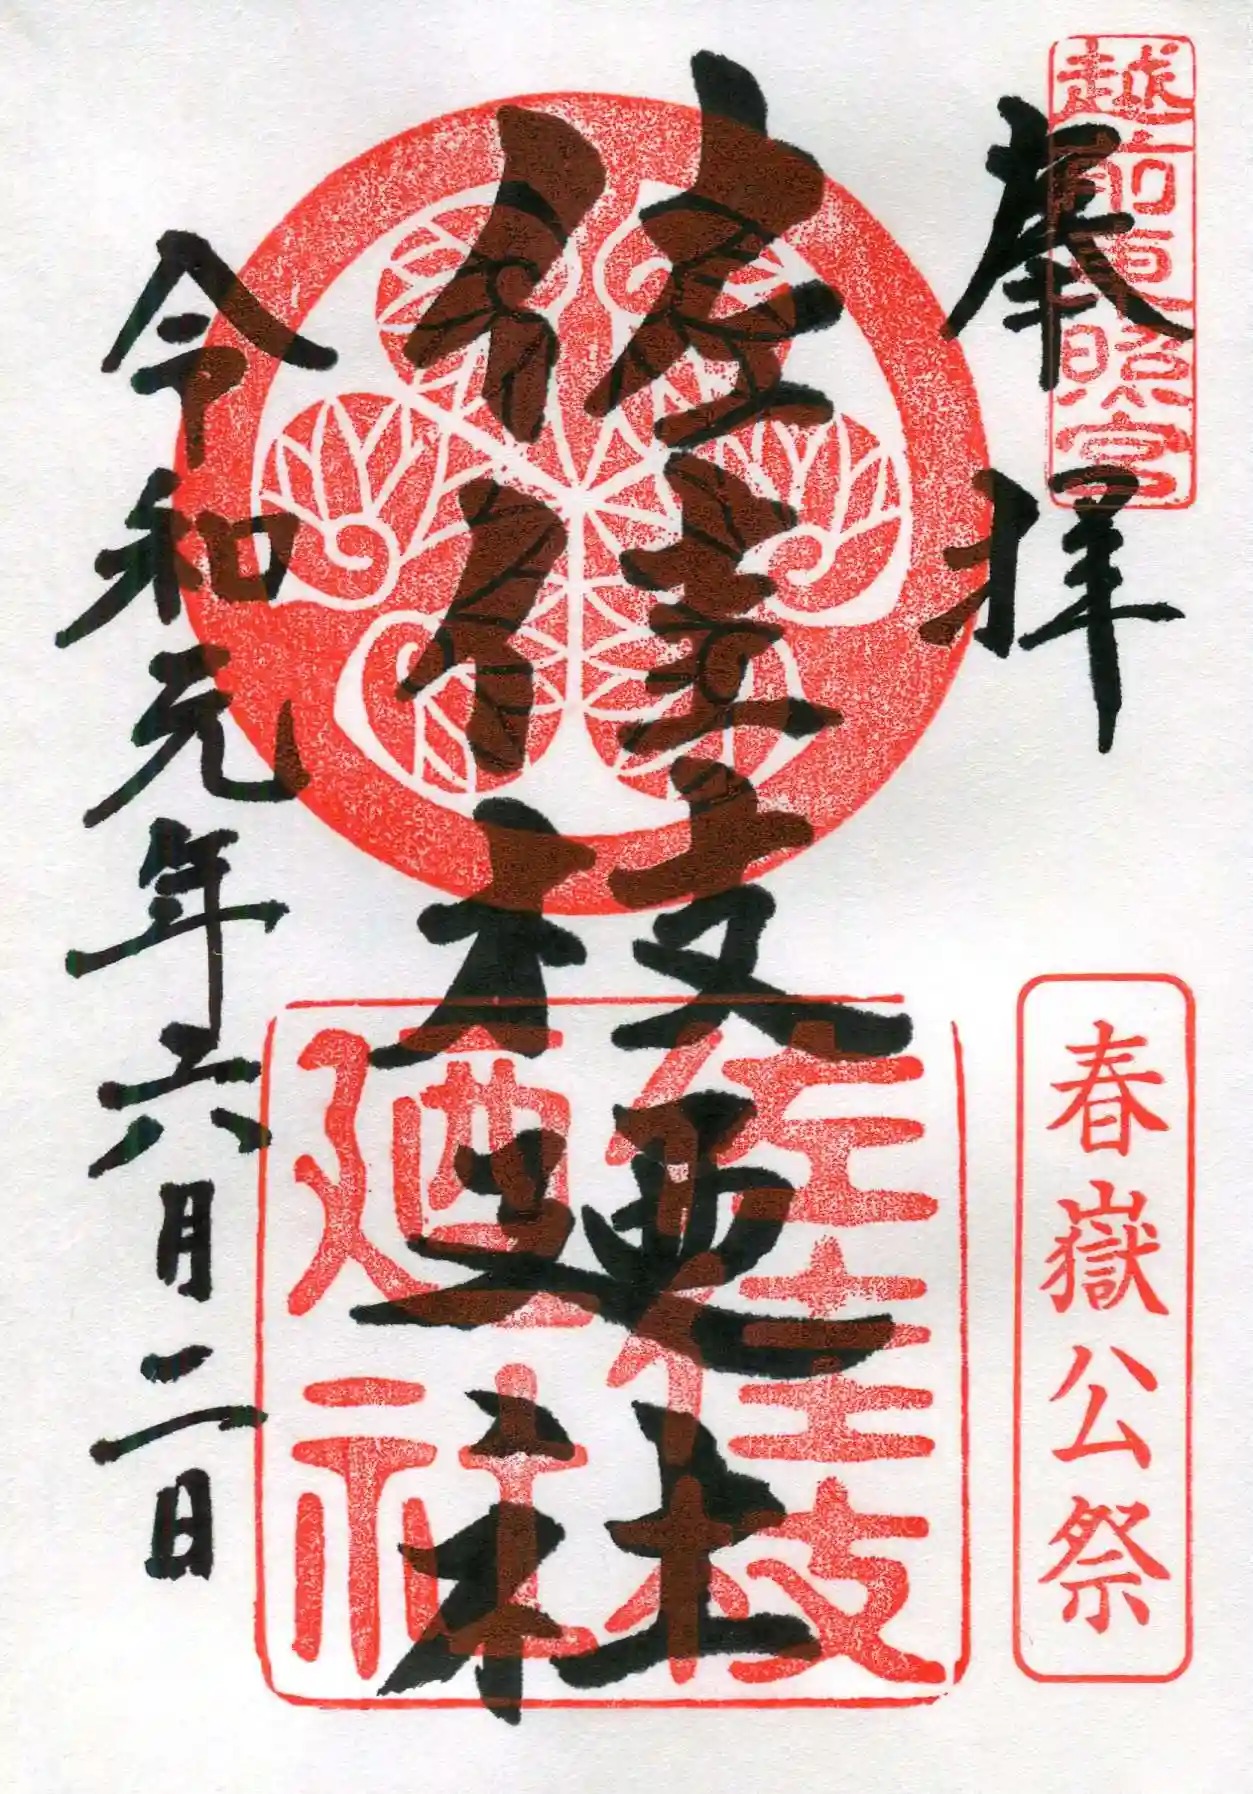 越前東照宮
奉拝
春嶽公祭
佐佳枝廼社
佐佳枝
廼社
令和元年六月二日